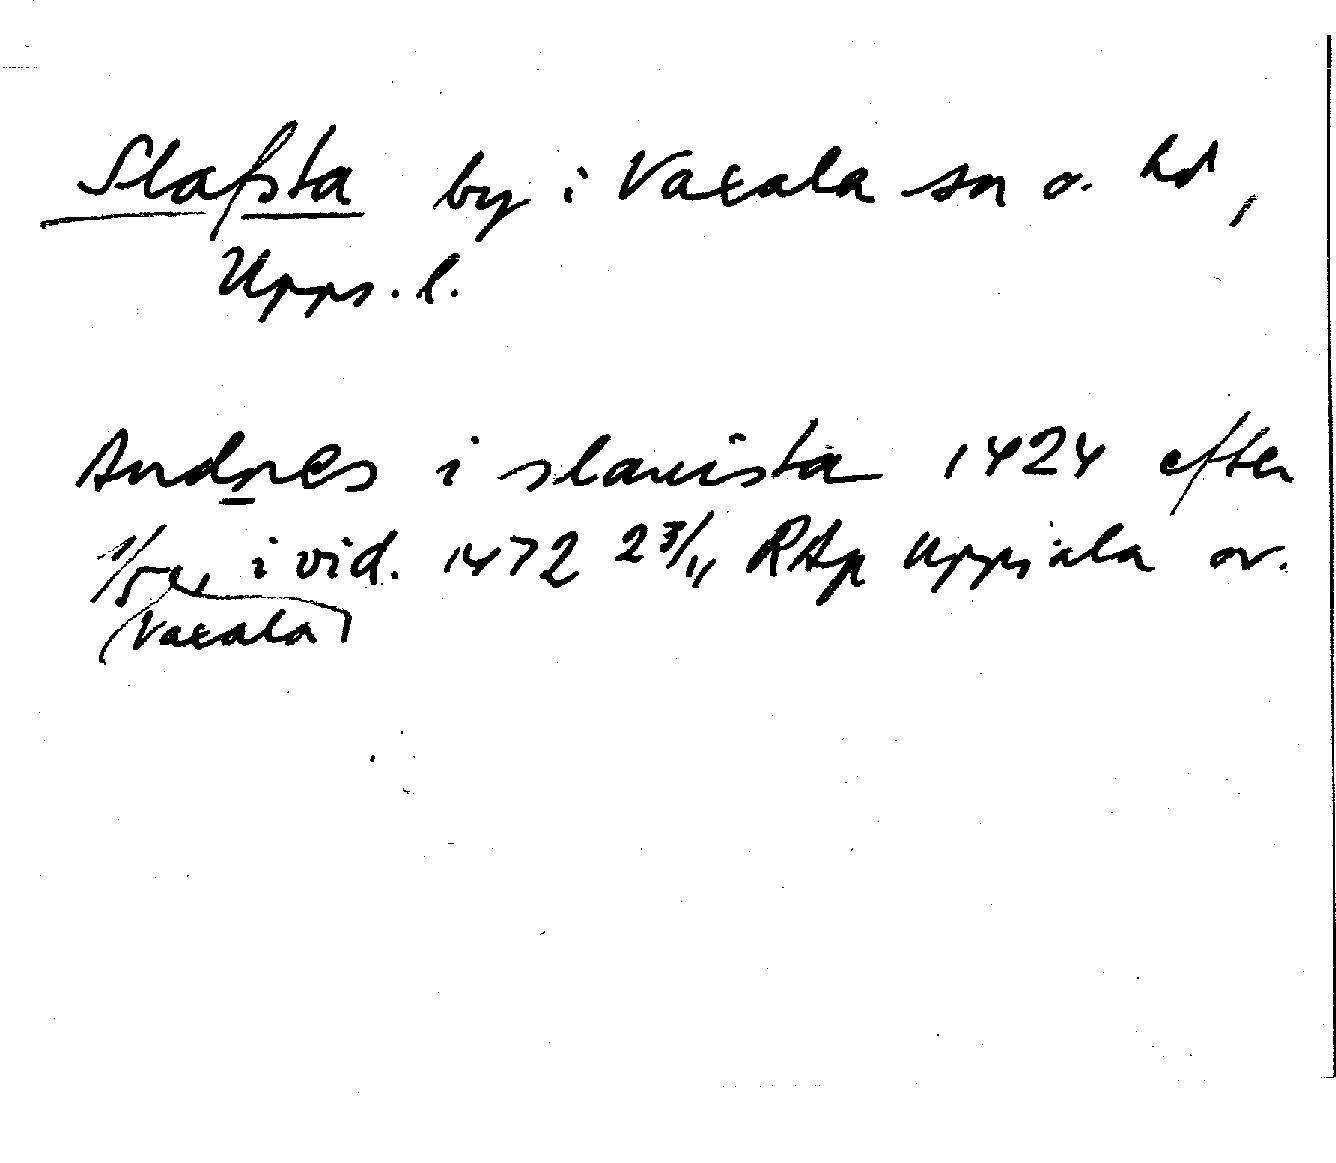 Slafsta by i Vaxala sn o. hd,
Upps. l.
Andres i slauista 1424 efter
1/5 i vid. 1472 23/11 RAp Uppsala ov.
Vaxala